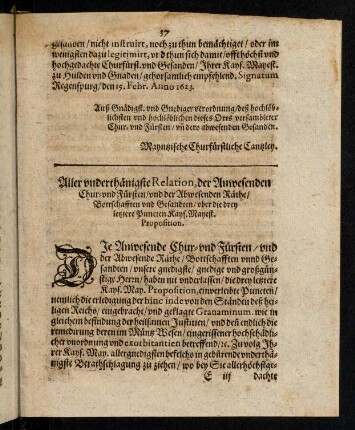 37
gesandten / nicht instruirt, noch zu thun bemächtiget / oder im
wenigsten dazu legitimirt, vnd thun sich damit / offt höchst vnd
hochgedachte Churfürst. vnd Gesanden / Ihrer Kays. Mayest.
zu Hulden vnd Gnaden / gehorsamlich empfehlend. Signatum
Regenspurg / den 15. Febr. Anno 1623.
Auß Gnädigst. vnd Gnediger verordnung / deß hochlöb-
lichsten vnd hochlöblichen dieses Orts versambleter
Chur. vnd Fürsten / vñ dero abwesenden Gesanden.
Mayntzische Churfürstliche Cantzley.
Aller vnderthänigste Relation, der Anwesenden
Chur-vnd Fürsten / vnd der Abwesenden Räthe /
Bottschafften vnd Gesandten / vber die drey
letztere Puncten Kays. Mayest.
Proposition.
DIe Anwesende Chur-vnd Fürsten / vnd
der Abwesende Räthe / Bottschafften vnnd Ge-
sandten / vnsere gnedigste / gnedige vnd großgün-
stige Herrn / haben nit vnderlassen / die drey letztere
Kays. May. Proposition, einverleibte Puncten /
nemlich die erledigung der hinc inde von den Ständen deß hei-
ligen Reichs / eingebracht / vnd geklagte Grauaminum. wie in
gleichem befindung der heilsamen Justitien / vnd dest endlich die
remedirung deren im Müntz Wesen / eingerissener hochschäd-
licher vnordnung vnd exorbitantien betreffend / ꝛc. Zu volg Ih-
rer Kays. May. allergnedigsten befelchs in gebürende vnderthä-
nigste Berathschlagung zu ziehen / wo bey Sie allerhöchstge-
E iij
dachte